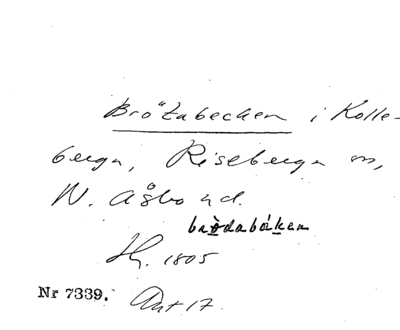 Brötabecken i Kolle-
berga, Riseberga sn,
N. Åsbo hd.
brödabäken
Hg. 1805
Nr 7339. Ant 17.